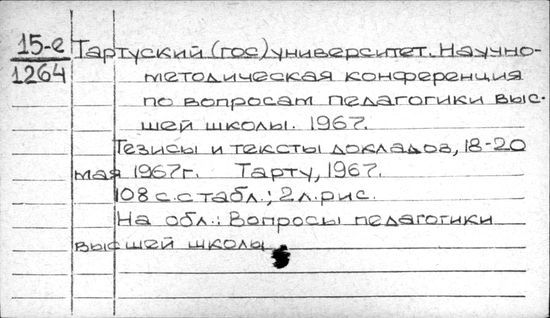 15-е
1264
Тартуский (гос) университет. Научно-
методическая конференция
по вопросам педагогики выс-
шей школы. 1967.
Тезисы и тексты докладов, 18-20
мая 1967г. Тарту, 1967.
108 с. с табл.; 2 л. рис.
На обл.: Вопросы педагогики
высшей школы